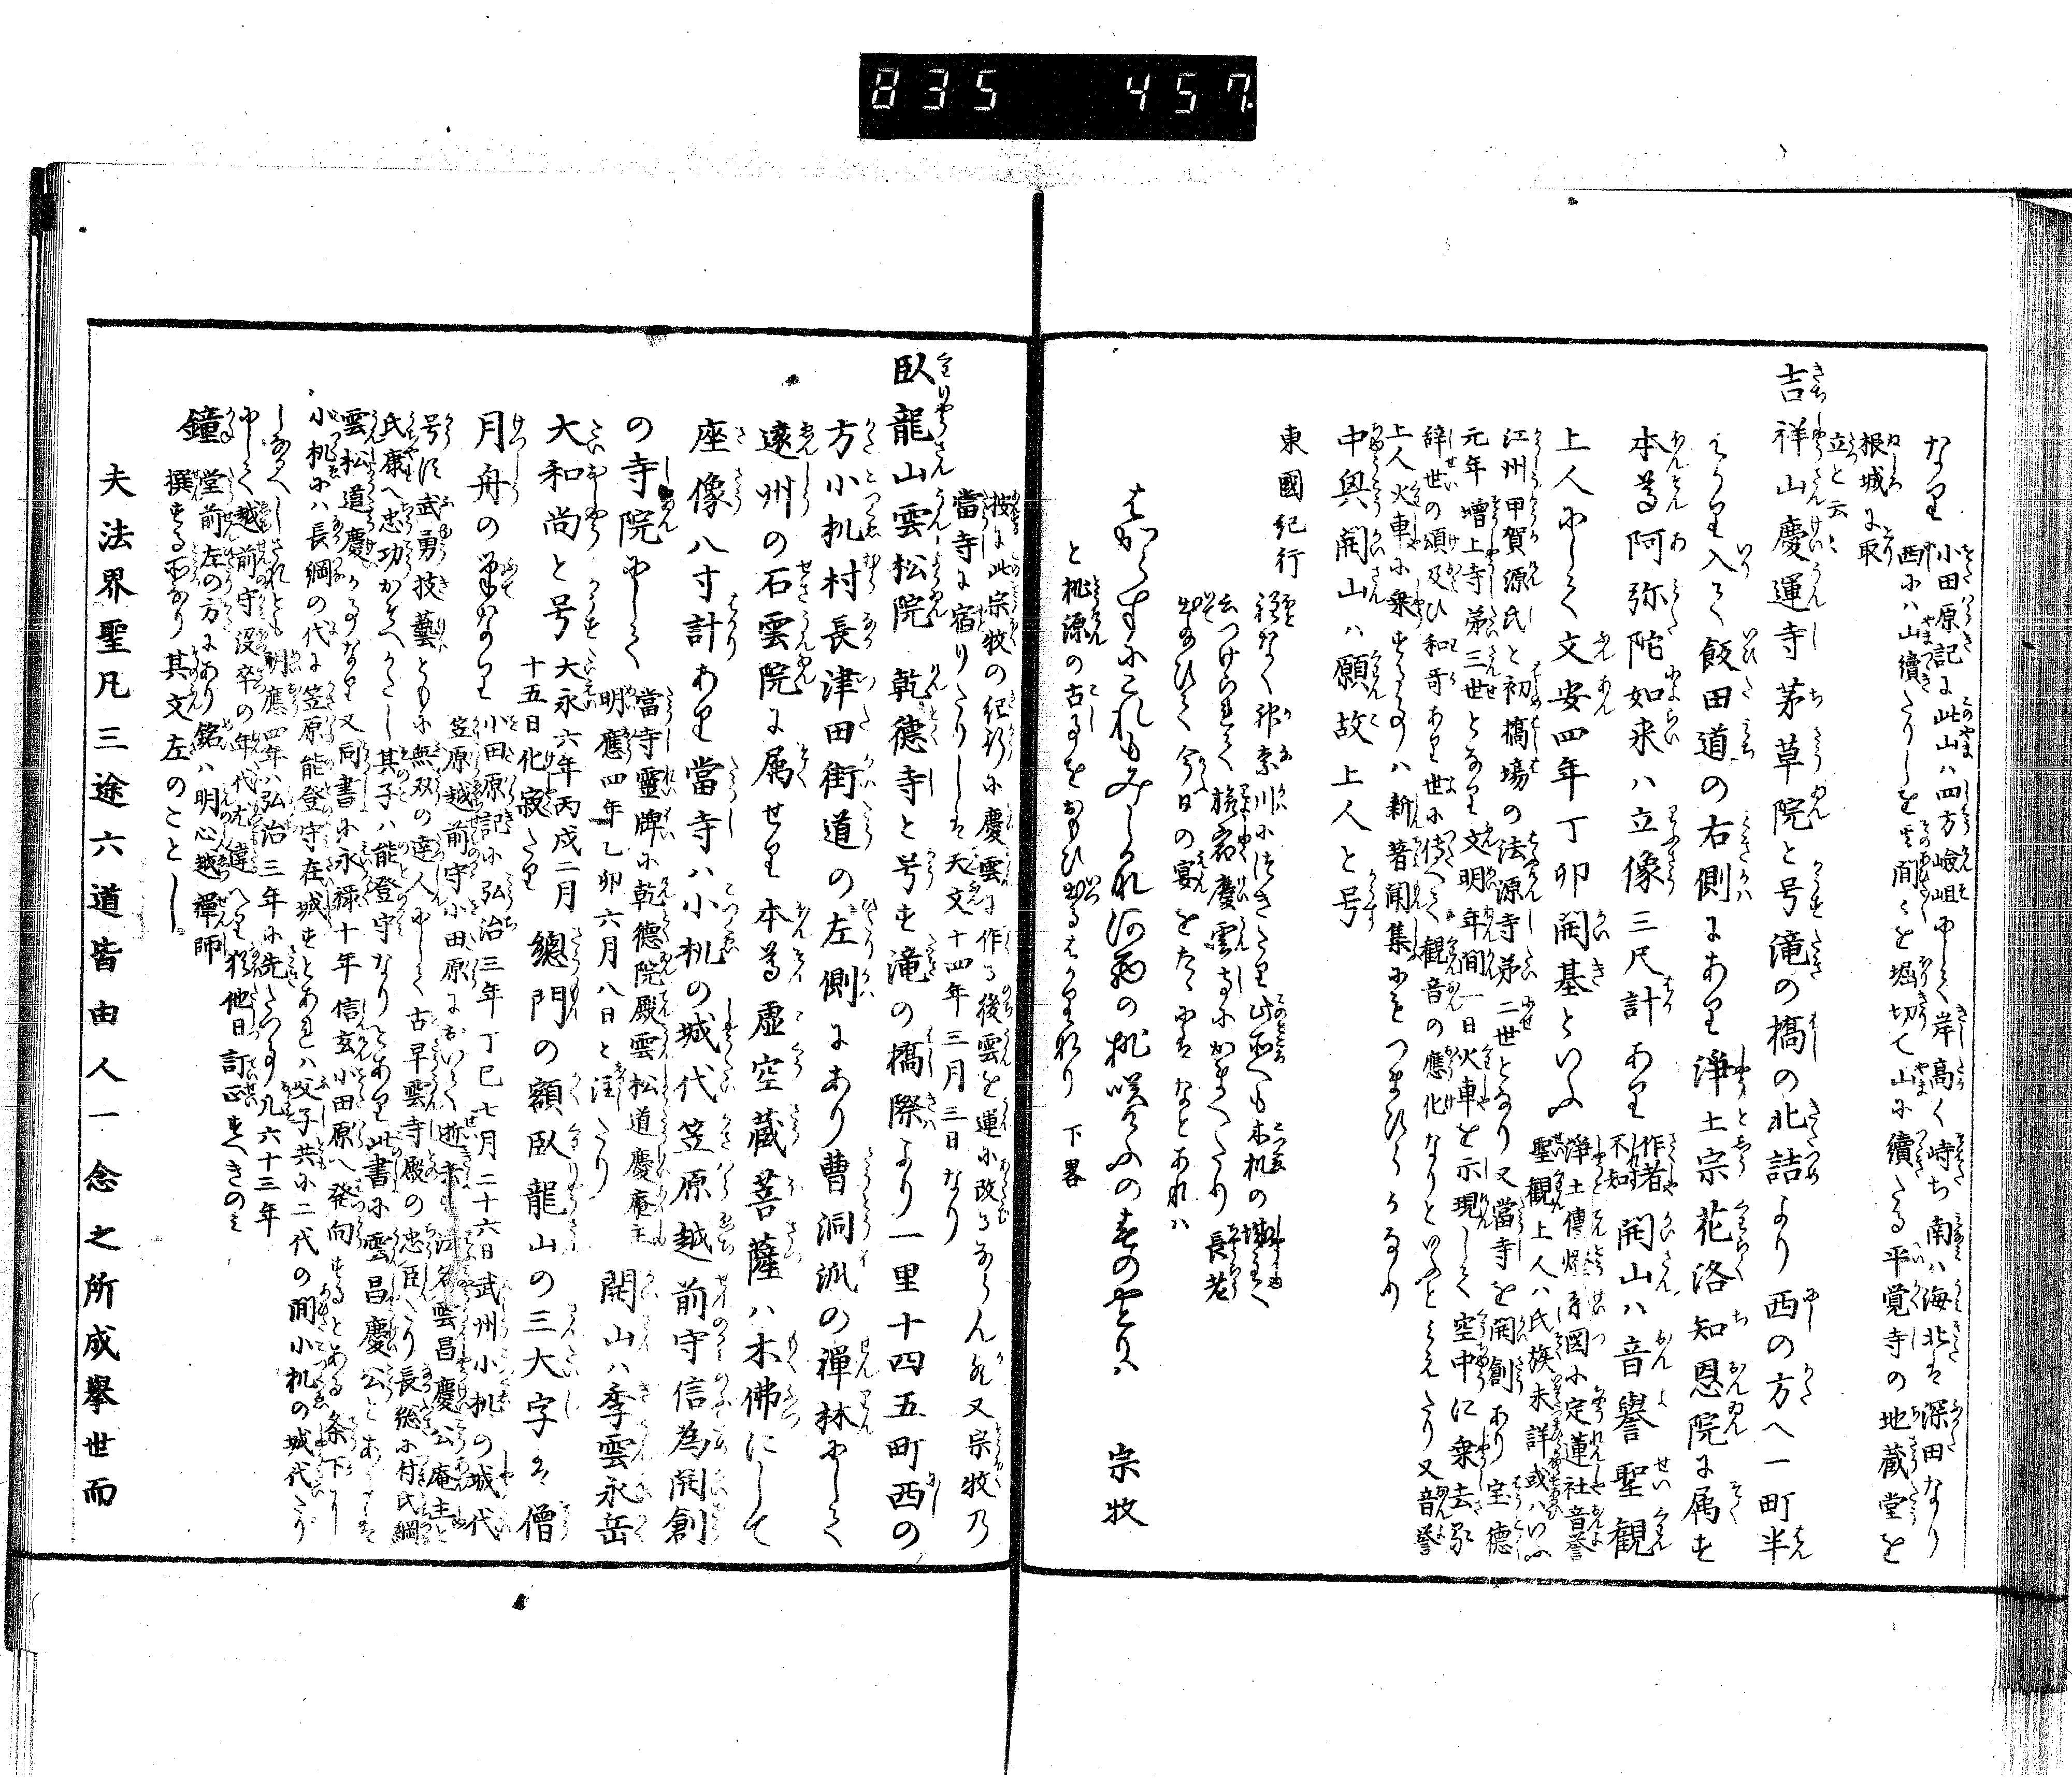 835 457
なり 小田原記に此山ハ四方嶮岨にして岸高く峙ち南ハ海北は深田なり
西にハ山續たりしを其間〻を堀切て山に續たる平覚寺の地蔵堂を
根城に取
立と云〻
吉祥山慶運寺茅草院と号滝の橋の北詰より西の方へ一町半
はかり入て飯田道の右側にあり浄土宗花洛知恩院に属す
本尊阿弥陀如来ハ立像三尺計あり 作者不知 開山ハ音譽聖観
上人にして文安四年丁卯開基といふ 浄土傳燈系圖に定蓮社音誉
聖觀上人ハ氏族未詳或ハいふ
江州甲賀源氏と初橋場の法源寺第二世となり又當寺を開創あり宝徳
元年増上寺第三世となり文明年間一日火車を示現して空中に乗去
辞世の頌及ひ和哥あり世に傳へて觀音の應化なりといふとみえたり又音誉
上人火車に乗するの事ハ新著聞集にもつまひらかなり
中興開山ハ願故上人と号
東國紀行 程なく神奈川につきたり此所へも小机の
云つけられて旅宿慶雲寺にかまへたり長老
出あひて今日の宴をたゝにはなとあれハ
とからすにこれもみしられぬ河面の桃咲そふのはなのやとりハ 宗牧
と桃源の古事をおもひ出るはかりなり 下畧
按に此宗牧の紀行に慶雲に作る後雲を運に改るならん歟又宗牧乃
當寺に宿りたりしは天文十四年三月三日なり
臥龍山雲松院 乾德寺と号す滝の橋際より一里十四五町西の
方小机村長津田街道の左側にあり曹洞派の禅林にして
遠州の石雲院に属せり本尊虚空蔵菩薩ハ木佛にして
座像八寸計あり當寺ハ小机の城代笠原越前守信為開創
の寺院にして 當寺靈牌に乾徳院殿雲松道慶庵主
明應四年乙卯六月八日と注したり 開山ハ季雲永岳
大和尚と号 大永六年丙戌二月
十五日化寂たり 總門の額臥龍山の三大字は僧
月舟の筆なり 小田原記に弘治三年丁巳七月二十六日武州小机の城代
笠原越前守小田原において逝去す法名雲昌慶公庵主と
号す武勇技藝ともに無双の達人にして古早雲寺殿の忠臣たり長総に付氏綱
氏康へ忠功かそへかたし其子ハ能登守なりとあり此書に雲昌慶公とあるは
雲松道慶の事なり又同書に永禄十年信玄小田原へ発向するとある条下に
小机にハ長綱の代に笠原能登守在城すとあれハ父子共に二代の間小机の城代たり
しなるへしされとも明應四年ハ弘治三年に先たつ事凡六十三年
にして越前守沒卒の年代尤違へり猶他日訂正すへきのミ
鐘 堂前左の方にあり銘ハ明心越禪師
撰する所なり其文左のことし
夫法界聖凡三途六道皆由人一念之所成擧世而